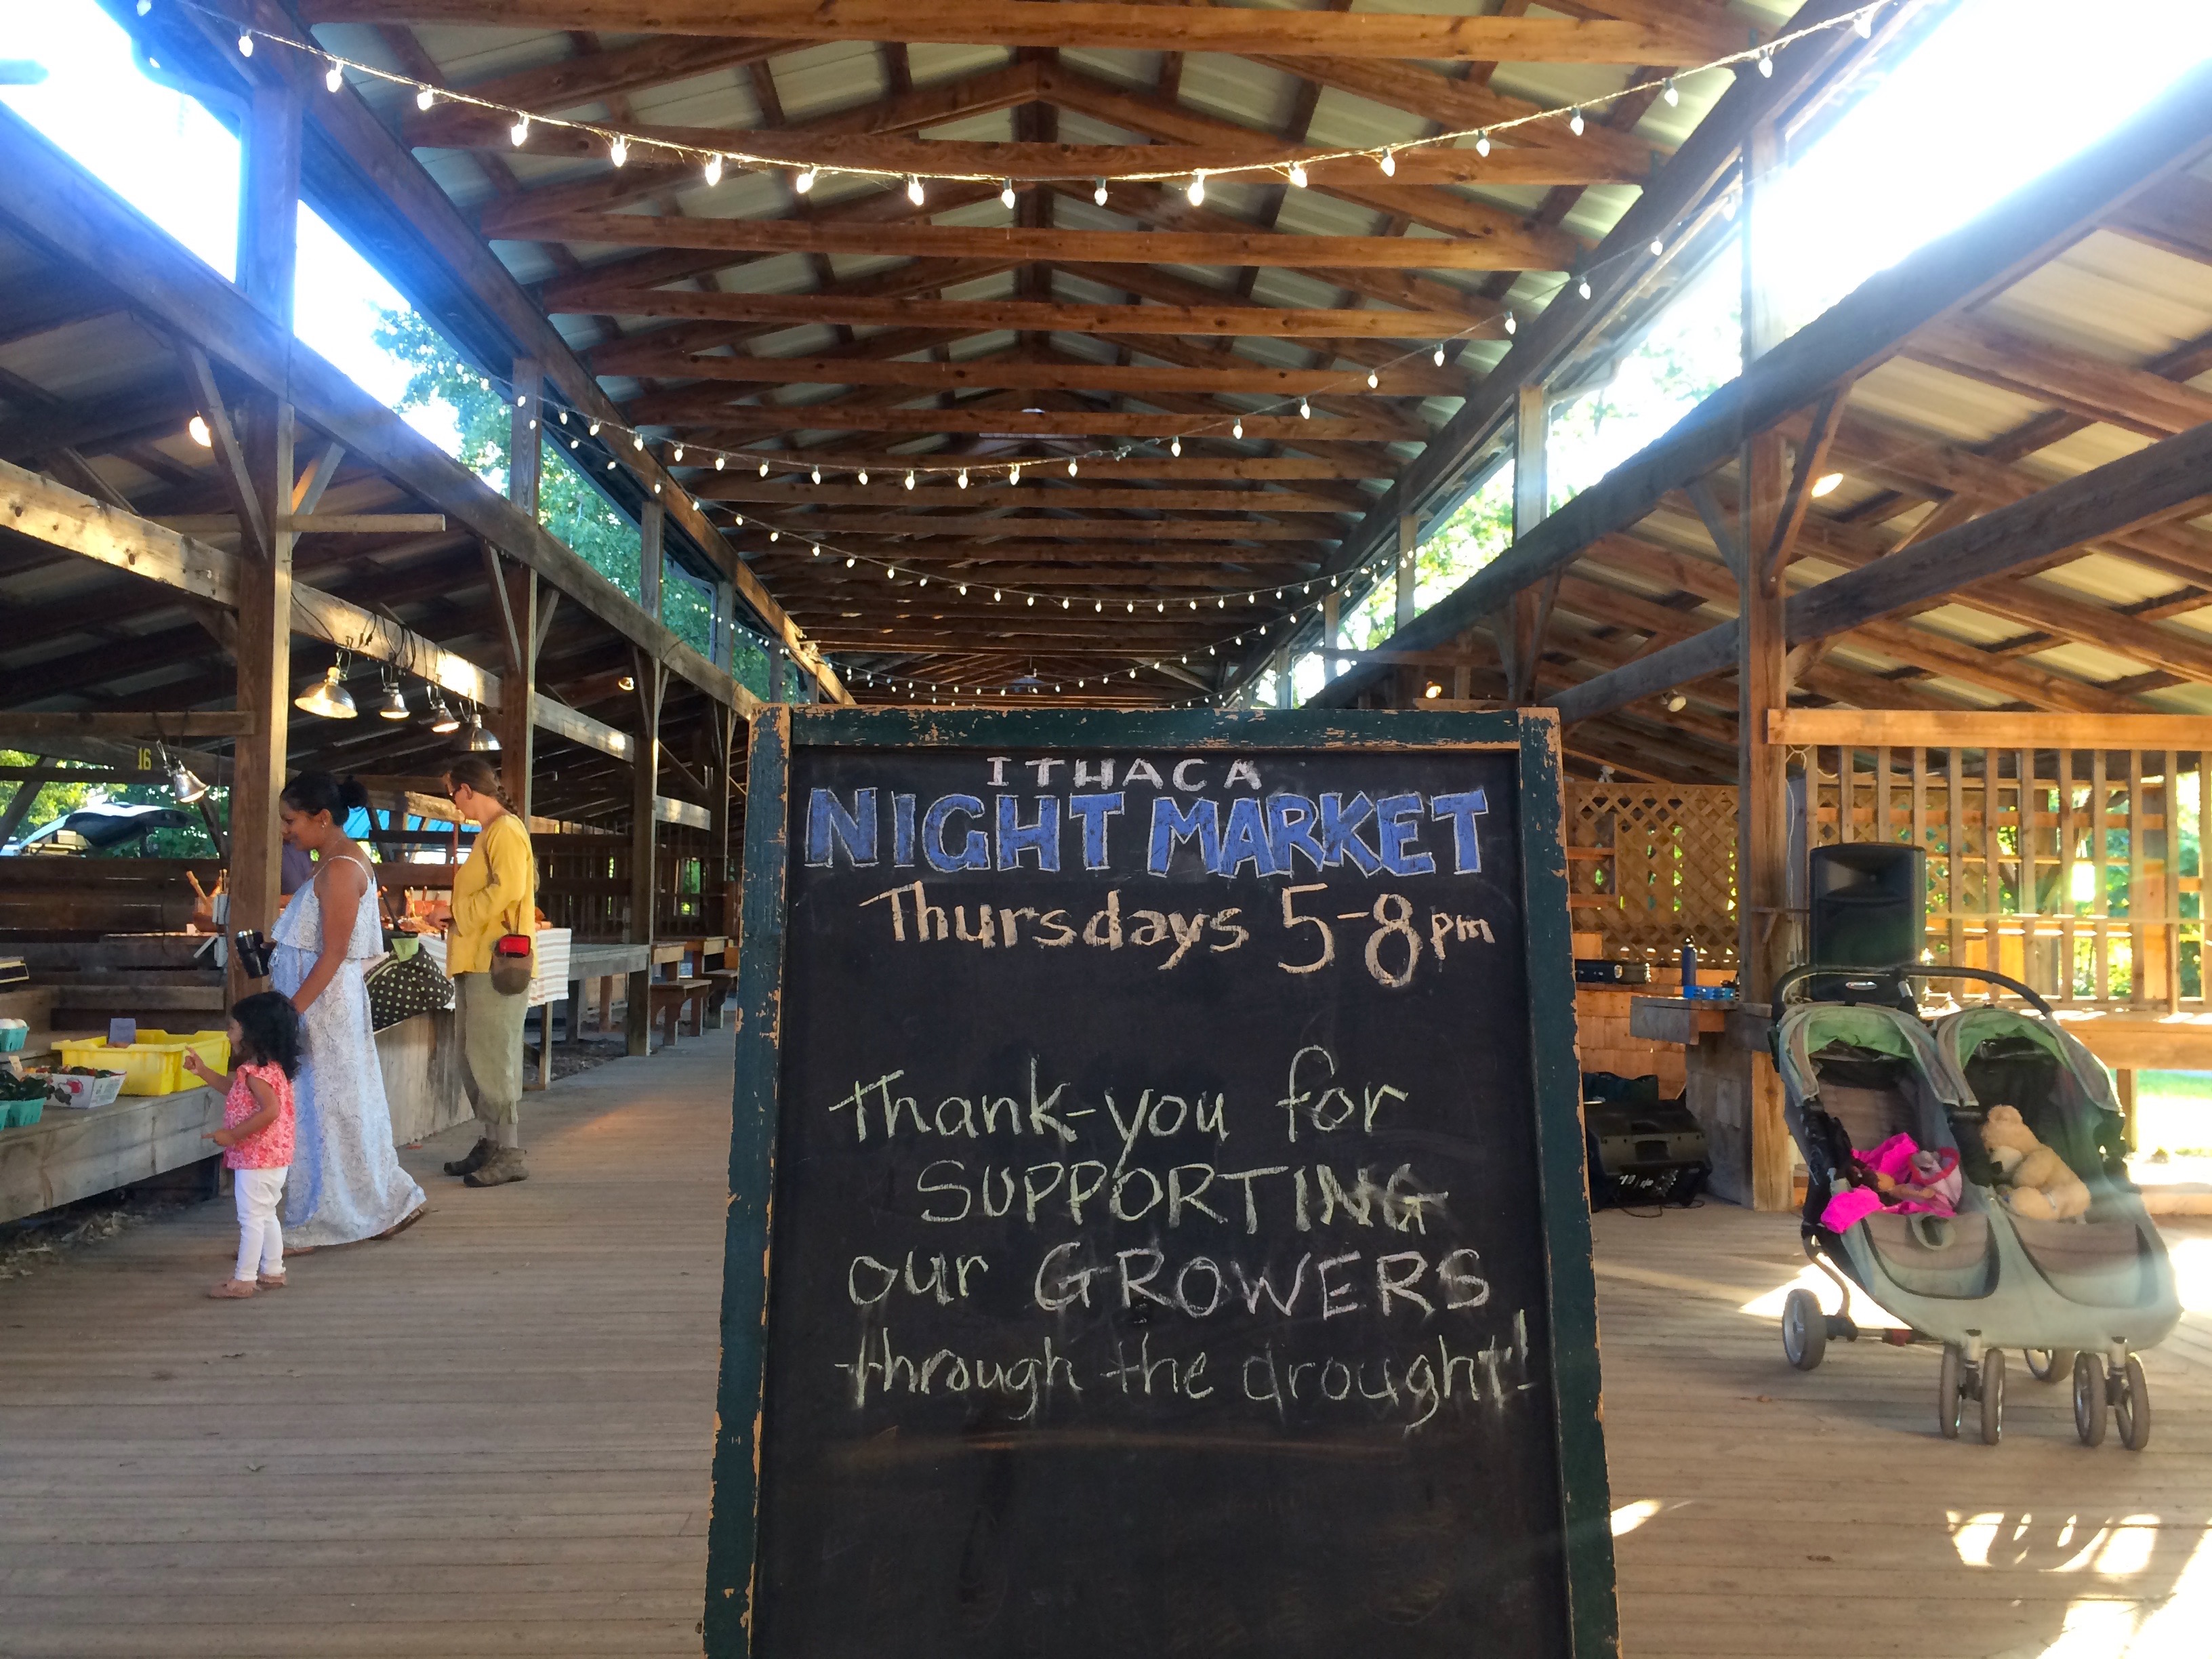 16
ITHACA
NIGHT MARKET
Thursdays 5-8pm
Thank-you for
SUPPORTING
our GROWERS
through the drought!